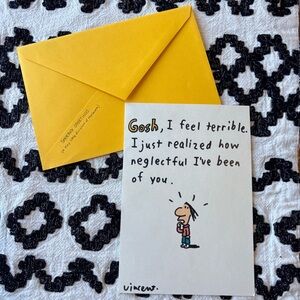 Gosh, I feel terrible.
I just realized how
neglectful I've been
of you.